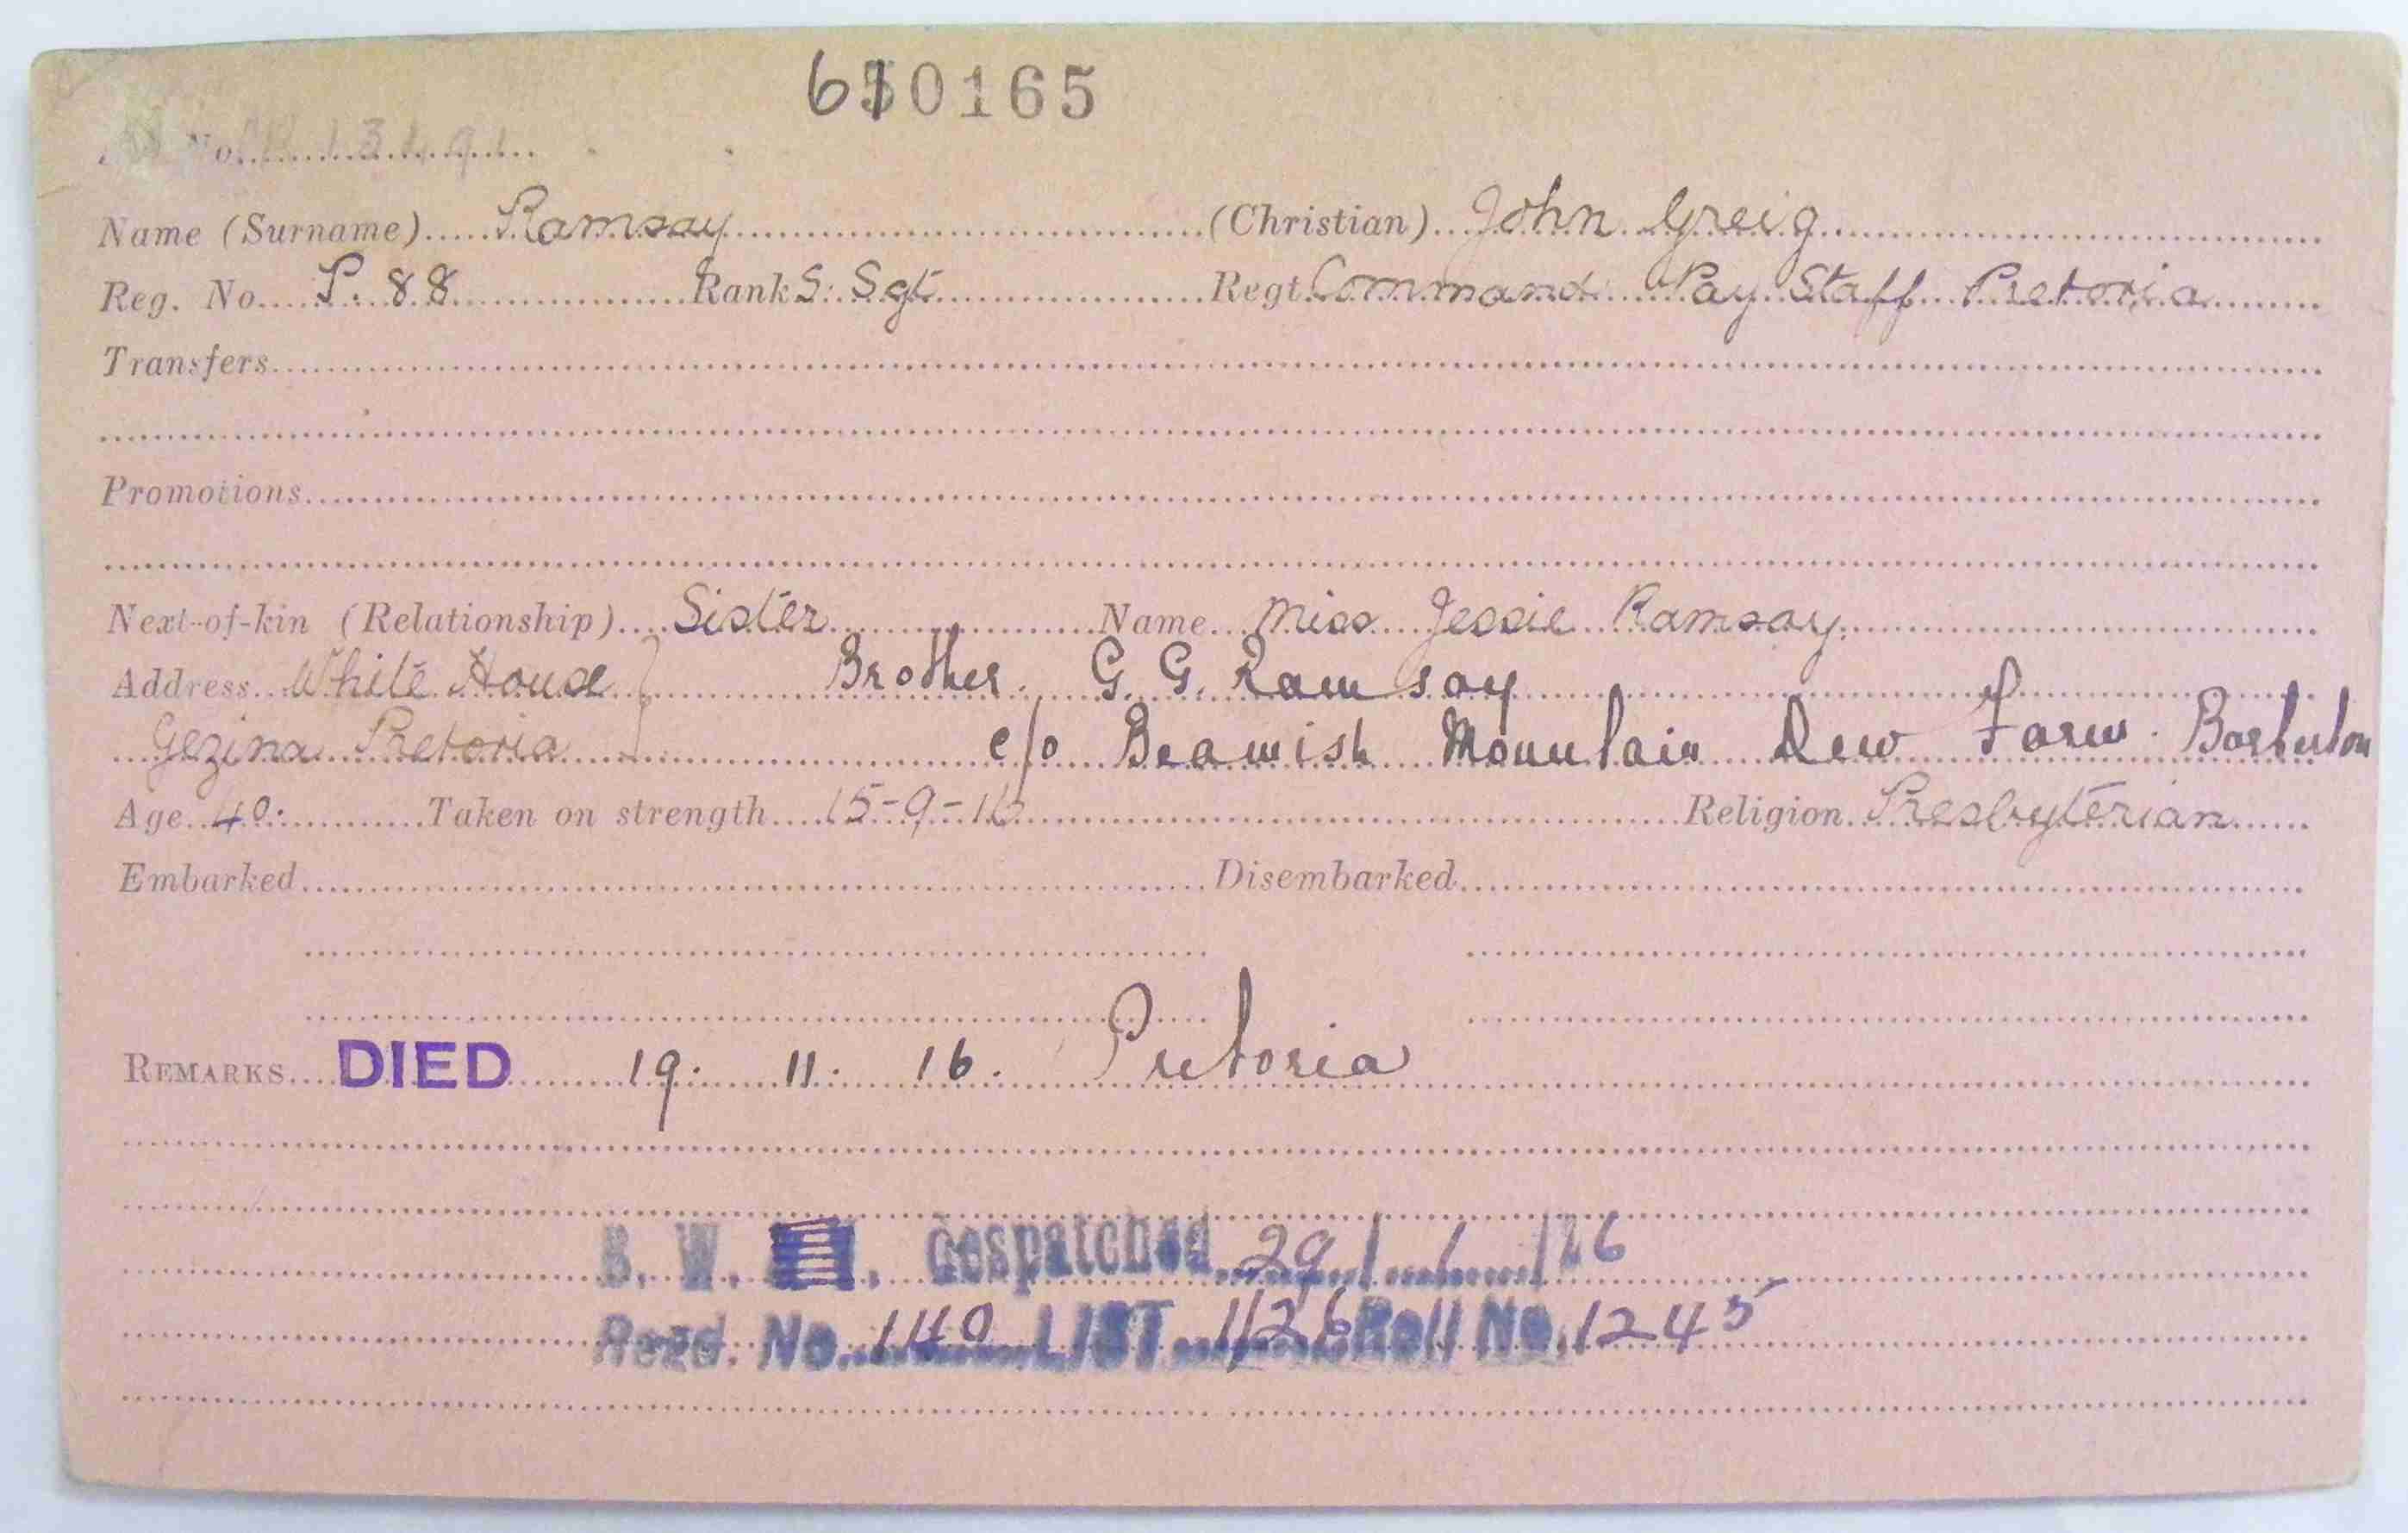 610165
No.
Name (Surname) Ramsay (Christian) John Greig
Reg. No. P. 88 Rank S. Sgt Regt. Command Pay Staff Pretoria
Transfers
Promotions
Next-of-kin (Relationship) Sister Name Miss Jessie Ramsay.
Address White House Brother. G. G. Ramsay
Gezina Pretoria c/o Beamish Mountain Dew Farm. Barberton
Age 40. Taken on strength 15-9-16 Religion Presbyterian
Embarked Disembarked
REMARKS DIED 19. 11. 16. Pretoria
B. W. despatched 29/6/26
Regd. No. 140 LIST 1126 Roll No. 1245